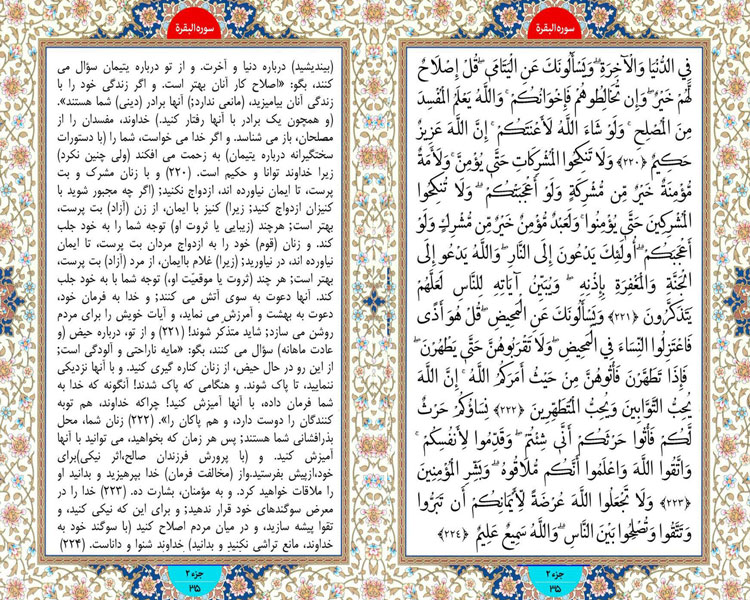 سوره البقرة
فِي الدُّنْيَا وَالْآخِرَةِ ۗ وَيَسْأَلُونَكَ عَنِ الْيَتَامَىٰ ۖ قُلْ إِصْلَاحٌ
لَّهُمْ خَيْرٌ ۖ وَإِن تُخَالِطُوهُمْ فَإِخْوَانُكُمْ ۚ وَاللَّهُ يَعْلَمُ الْمُفْسِدَ
مِنَ الْمُصْلِحِ ۚ وَلَوْ شَاءَ اللَّهُ لَأَعْنَتَكُمْ ۚ إِنَّ اللَّهَ عَزِيزٌ
حَكِيمٌ ﴿۲۲۰﴾ وَلَا تَنكِحُوا الْمُشْرِكَاتِ حَتَّىٰ يُؤْمِنَّ ۚ وَلَأَمَةٌ
مُّؤْمِنَةٌ خَيْرٌ مِّن مُّشْرِكَةٍ وَلَوْ أَعْجَبَتْكُمْ ۗ وَلَا تُنكِحُوا
الْمُشْرِكِينَ حَتَّىٰ يُؤْمِنُوا ۚ وَلَعَبْدٌ مُّؤْمِنٌ خَيْرٌ مِّن مُّشْرِكٍ وَلَوْ
أَعْجَبَكُمْ ۗ أُولَٰئِكَ يَدْعُونَ إِلَى النَّارِ ۖ وَاللَّهُ يَدْعُو إِلَى
الْجَنَّةِ وَالْمَغْفِرَةِ بِإِذْنِهِ ۖ وَيُبَيِّنُ آيَاتِهِ لِلنَّاسِ لَعَلَّهُمْ
يَتَذَكَّرُونَ ﴿۲۲۱﴾ وَيَسْأَلُونَكَ عَنِ الْمَحِيضِ ۖ قُلْ هُوَ أَذًى
فَاعْتَزِلُوا النِّسَاءَ فِي الْمَحِيضِ ۖ وَلَا تَقْرَبُوهُنَّ حَتَّىٰ يَطْهُرْنَ ۖ
فَإِذَا تَطَهَّرْنَ فَأْتُوهُنَّ مِنْ حَيْثُ أَمَرَكُمُ اللَّهُ ۚ إِنَّ اللَّهَ
يُحِبُّ التَّوَّابِينَ وَيُحِبُّ الْمُتَطَهِّرِينَ ﴿۲۲۲﴾ نِسَاؤُكُمْ حَرْثٌ
لَّكُمْ فَأْتُوا حَرْثَكُمْ أَنَّىٰ شِئْتُمْ ۖ وَقَدِّمُوا لِأَنفُسِكُمْ ۚ
وَاتَّقُوا اللَّهَ وَاعْلَمُوا أَنَّكُم مُّلَاقُوهُ ۗ وَبَشِّرِ الْمُؤْمِنِينَ
﴿۲۲۳﴾ وَلَا تَجْعَلُوا اللَّهَ عُرْضَةً لِّأَيْمَانِكُمْ أَن تَبَرُّوا
وَتَتَّقُوا وَتُصْلِحُوا بَيْنَ النَّاسِ ۗ وَاللَّهُ سَمِيعٌ عَلِيمٌ ﴿۲۲۴﴾
جزء ۲
۳۵
سوره البقرة
(بیندیشید) درباره دنیا و آخرت. و از تو درباره یتیمان سؤال می
کنند، بگو: «اصلاح کار آنان بهتر است. و اگر زندگی خود را با
زندگی آنان بیامیزید، (مانعی ندارد;) آنها برادر (دینی) شما هستند».
(و همچون یک برادر با آنها رفتار کنید.) خداوند، مفسدان را از
مصلحان، باز می شناسد. و اگر خدا می خواست، شما را (با دستورات
سختگیرانه درباره یتیمان) به زحمت می افکند (ولی چنین نکرد)
زیرا خداوند توانا و حکیم است. (۲۲۰) و با زنان مشرک و بت
پرست، تا ایمان نیاورده اند، ازدواج نکنید; (اگر چه مجبور شوید با
کنیزان ازدواج کنید; زیرا) کنیز با ایمان، از زن (آزاد) بت پرست،
بهتر است; هرچند (زیبایی یا ثروت او) توجه شما را به خود جلب
کند. و زنان (قوم) خود را به ازدواج مردان بت پرست، تا ایمان
نیاورده اند، در نیاورید; (زیرا) غلام باایمان، از مرد (آزاد) بت پرست،
بهتر است; هر چند (ثروت یا موقعیّت او،) توجه شما را به خود جلب
کند. آنها دعوت به سوی آتش می کنند; و خدا به فرمان خود،
دعوت به بهشت و آمرزش می نماید، و آیات خویش را برای مردم
روشن می سازد; شاید متذکر شوند! (۲۲۱) و از تو، درباره حیض (و
عادت ماهانه) سؤال می کنند، بگو: «مایه ناراحتی و آلودگی است;
از این رو در حال حیض، از زنان کناره گیری کنید. و با آنها نزدیکی
ننمایید، تا پاک شوند. و هنگامی که پاک شدند! آنگونه که خدا به
شما فرمان داده، با آنها آمیزش کنید! چراکه خداوند، هم توبه
کنندگان را دوست دارد، و هم پاکان را». (۲۲۲) زنان شما، محل
بذرافشانی شما هستند; پس هر زمان که بخواهید، می توانید با آنها
آمیزش کنید. و (با پرورش فرزندان صالح،اثر نیکی)برای
خود،ازپیش بفرستید.واز (مخالفت فرمان) خدا بپرهیزید و بدانید او
را ملاقات خواهید کرد. و به مؤمنان، بشارت ده. (۲۲۳) خدا را در
معرض سوگندهای خود قرار ندهید; و برای این که نیکی کنید، و
تقوا پیشه سازید، و در میان مردم اصلاح کنید (با سوگند خود به
خداوند، مانع تراشی نکنید و بدانید) خداوند شنوا و داناست. (۲۲۴)
جزء ۲
۳۵